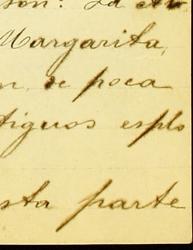 son: La
Margarita,
n, se poca
tiguos esplo
sta parte